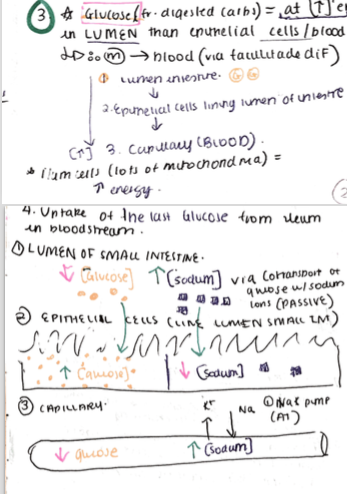 ③ ☆ Glucose (fr. digested carbs) = at [↑]
in LUMEN than epithelial cells/blood
↳D ∴ ⓜ → blood (via facilitade dif)
① Lumen intestine.
↓
2. Epithelial cells lining lumen of intestine
↓
[↑] 3. Capillary (BLOOD).
* Ileum cells (lots of mitochondria) =
↑ energy.
4. Uptake of the last Glucose from ileum
in bloodstream.
① LUMEN OF SMALL INTESTINE.
↓ [Glucose] ↑ [sodium] via cotransport of
glucose w/ sodium
ions (PASSIVE)
② EPITHELIAL CELLS (LINE LUMEN SMALL INT)
↑ [Glucose] ↓ [sodium]
③ CAPILLARY. K⁺ Na ① Na K pump
(AT)
↓ glucose ↑ [sodium]